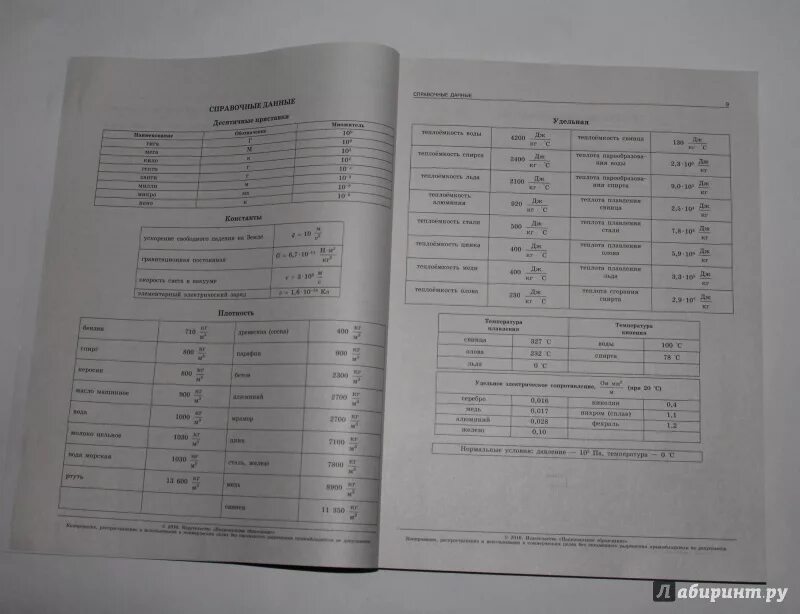 СПРАВОЧНЫЕ ДАННЫЕ
Десятичные приставки
Наименование Обозначение Множитель
гига Г 10⁹
мега М 10⁶
кило к 10³
гекто г 10²
санти с
милли м 10⁻³
микро мк 10⁻⁶
нано н
Константы
ускорение свободного падения на Земле g = 10 м/с²
гравитационная постоянная G = 6,7·10⁻¹¹ Н·м²/кг²
скорость света в вакууме c = 3·10⁸ м/с
элементарный электрический заряд e = 1,6·10⁻¹⁹ Кл
Плотность
бензин 710 кг/м³ древесина (сосна) 400 кг/м³
спирт 800 кг/м³ парафин 900 кг/м³
керосин 800 кг/м³ бетон 2300 кг/м³
масло машинное 900 кг/м³ алюминий 2700 кг/м³
вода 1000 кг/м³ мрамор 2700 кг/м³
молоко цельное 1030 кг/м³ цинк 7100 кг/м³
вода морская 1030 кг/м³ сталь, железо 7800 кг/м³
ртуть 13 600 кг/м³ медь 8900 кг/м³
свинец 11 350 кг/м³
© 2016. Издательство «Национальное образование»
Копирование, распространение и использование в коммерческих целях без письменного разрешения правообладателя не допускается
СПРАВОЧНЫЕ ДАННЫЕ 9
Удельная
теплоёмкость воды 4200 Дж/кг·°С теплоёмкость свинца 130 Дж/кг·°С
теплоёмкость спирта 2400 Дж/кг·°С теплота парообразования воды 2,3·10⁶ Дж/кг
теплоёмкость льда 2100 Дж/кг·°С теплота парообразования спирта 9,0·10⁵ Дж/кг
теплоёмкость алюминия 920 Дж/кг·°С теплота плавления свинца 2,5·10⁴ Дж/кг
теплоёмкость стали 500 Дж/кг·°С теплота плавления стали 7,8·10⁴ Дж/кг
теплоёмкость цинка 400 Дж/кг·°С теплота плавления олова 5,9·10⁴ Дж/кг
теплоёмкость меди 400 Дж/кг·°С теплота плавления льда 3,3·10⁵ Дж/кг
теплоёмкость олова 230 Дж/кг·°С теплота сгорания спирта 2,9·10⁷ Дж/кг
Температура плавления Температура кипения
свинца 327 °С воды 100 °С
олова 232 °С спирта 78 °С
льда 0 °С
Удельное электрическое сопротивление, Ом·мм²/м (при 20 °С)
серебро 0,016 никелин 0,4
медь 0,017 нихром (сплав) 1,1
алюминий 0,028 фехраль 1,2
железо 0,10
Нормальные условия: давление — 10⁵ Па, температура — 0 °С
© 2016. Издательство «Национальное образование»
Копирование, распространение и использование в коммерческих целях без письменного разрешения правообладателя не допускается
Лабиринт.ру